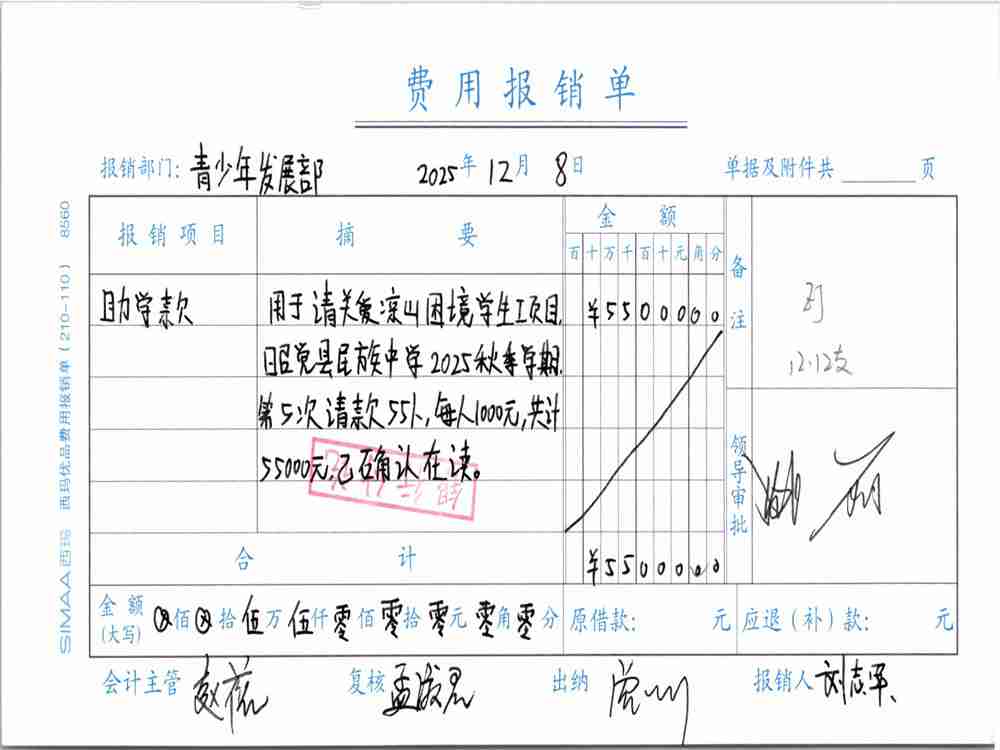 费用报销单
报销部门：青少年发展部 2025年12月8日 单据及附件共 页
报销项目 摘要 金额 备注
百十万千百十元角分
助学款 用于请关爱凉山困境学生工项目, ¥5500000
昭觉县民族中学2025秋季学期.
第5次请款55人,每人1000元,共计
55000元,已确认在读。
12.12支
领导审批
合计 ¥5500000
金额(大写) ⊗佰⊗拾伍万伍仟零佰零拾零元零角零分 原借款： 元 应退(补)款： 元
会计主管 复核 出纳 报销人 刘志平
SIMAA西玛 西玛优品费用报销单(210-110) 8560